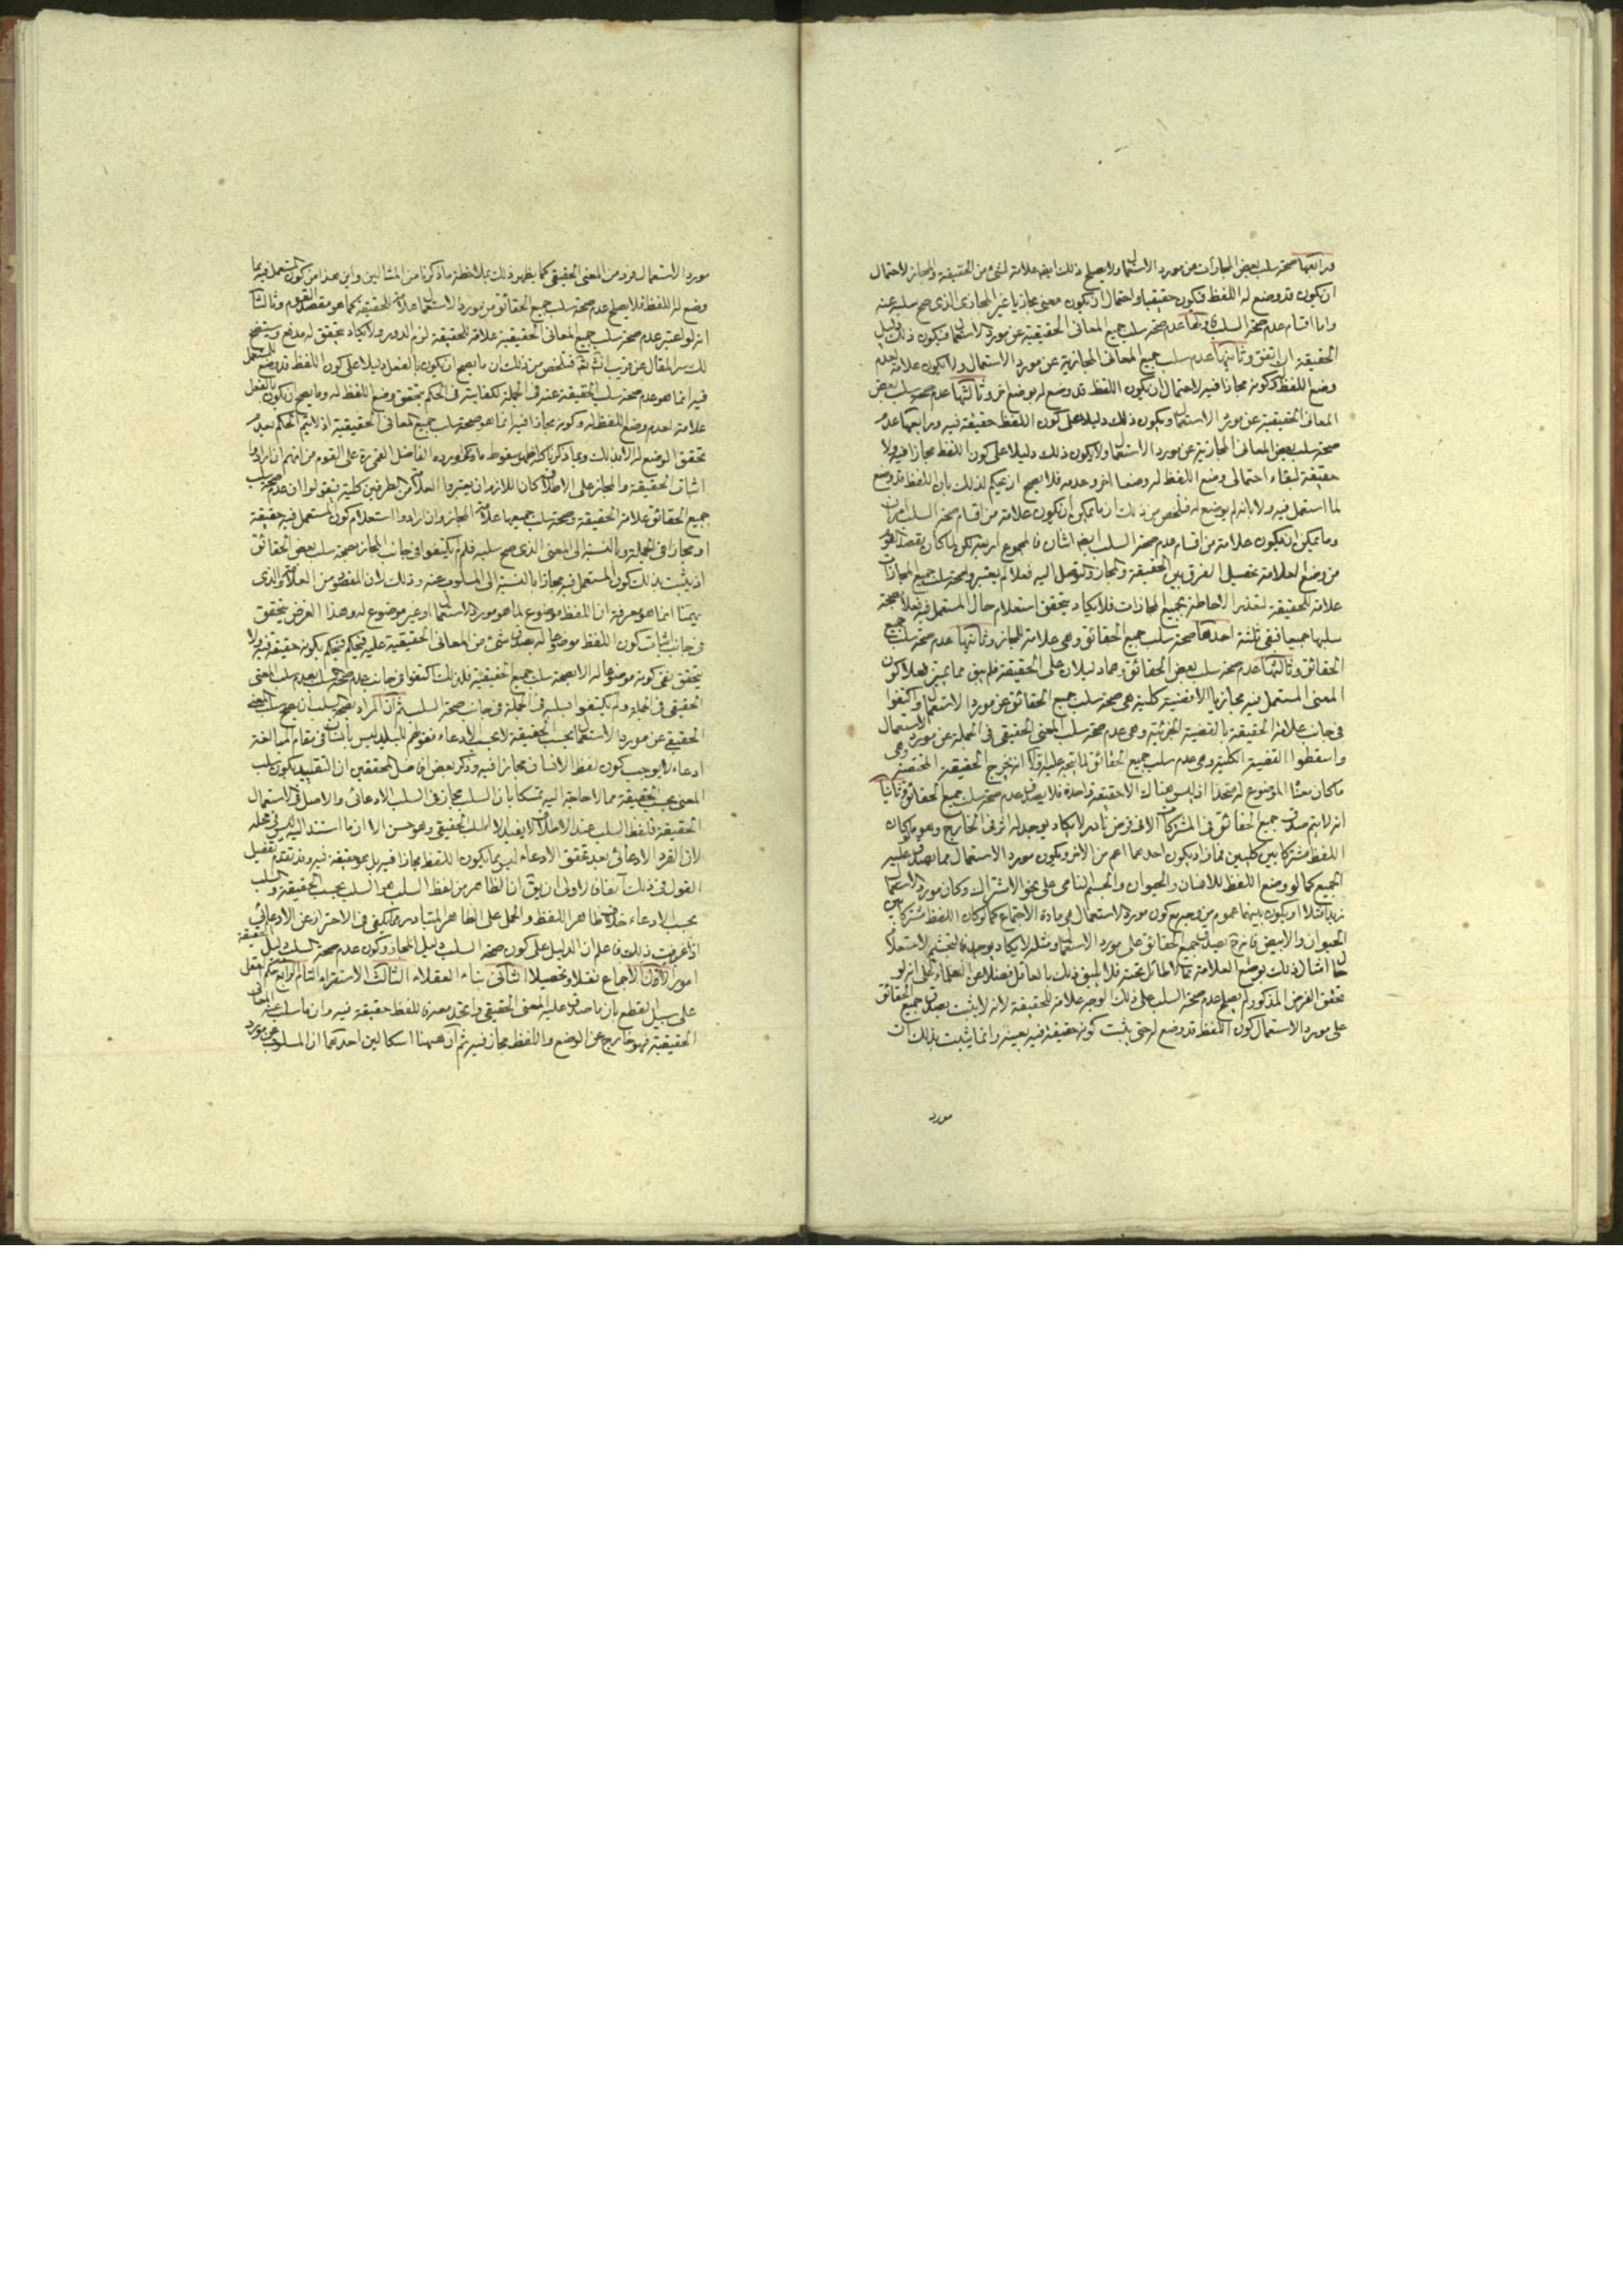 ورابعها صحة سلب بعض المجازات عن مورد الاستعمال ولا يصلح ذلك ايضا علامة لشئ من الحقيقة والمجاز لاحتمال
ان يكون قد وضع له اللفظ فيكون حقيقيا واحتمال ان يكون معنى مجازيا غير المجازى الذى صح سلبه عنه
واما اقسام عدم صحة السلب عدم صحة سلب جميع المعانى الحقيقية عن مورد الاستعمال فيكون ذلك دليل
الحقيقة ان اتفق وثانيها عدم سلب جميع المعانى المجازية عن مورد الاستعمال ولا يكون علامة لعدم
وضع اللفظ وكونه مجازا فيه لاحتمال ان يكون اللفظ قد وضع له بوضع اخر وثالثها عدم صحة سلب بعض
المعانى الحقيقية عن مورد الاستعمال ويكون ذلك دليلا على كون اللفظ حقيقة فيه ورابعها عدم
صحة سلب بعض المعانى المجازية عن مورد الاستعمال ولا يكون ذلك دليلا على كون اللفظ مجازا فيه ولا
حقيقة لبقاء احتمالى وضع اللفظ له وضعا اخر وعدمه فلا يصح ان يحكم لذلك بان اللفظ قد وضع
لما استعمل فيه ولا بانه لم يوضع له فتلخص من ذلك ان ما يمكن ان يكون علامة من اقسام صحة السلب امران
وما يمكن ان يكون علامة من اقسام عدم صحة السلب ايضا اثنان فالمجموع اربعة لكن لما كان مقصد القوم
من وضع العلامة تحصيل الفرق بين الحقيقة والمجاز والتوصل اليه فعلا لم يعتبروا صحة سلب جميع المجازات
علامة للحقيقة لتعذر الاحاطة بجميع المجازات فلا يكاد يتحقق استعلام حال المستعمل فيه فعلا صحة
سلبها جميعا فبقى ثلثة احدها صحة سلب جميع الحقائق وهى علامة المجاز وثانيها عدم صحة سلب جميع
الحقائق وثالثها عدم صحة سلب بعض الحقائق وهما دليلان على الحقيقة فلم يبق مما يميز فعلا كون
المعنى المستعمل فيه مجازيا الا قضية كلية هى صحة سلب جميع الحقائق عن مورد الاستعمال واكتفوا
فى جانب علامة الحقيقة بالقضية الجزئية وهى عدم صحة سلب المعنى الحقيقى فى الجملة عن مورد الاستعمال
واسقطوا القضية الكلية وهى عدم سلب جميع الحقائق لما يتجه عليه اولا انه يخرج الحقيقة المختصة وهى
ما كان معنا الموضوع له متحدا اذ ليس هناك الا حقيقة واحدة فلا يصدق عدم صحة سلب جميع الحقائق وثانيا
انه لا يتم صدق جميع الحقائق فى المشتركات الا فى فرض نادر لا يكاد يوجد له اثر فى الخارج وهو ما كان
اللفظ مشتركا بين كليين فما زاد يكون احدهما اعم من الاخر ويكون مورد الاستعمال مما يصدق عليه
الجميع كما لو وضع اللفظ للانسان والحيوان والجسم النامى على نحو الاشتراك وكان مورد الاستعمال
زيدا مثلا او يكون بينهما عموم من وجه مع كون مورد الاستعمال هى مادة الاجتماع كما لو كان اللفظ مشتركا بين
الحيوان والابيض فانه يصدق جميع الحقائق على مورد الاستعمال ومثله لا يكاد يوجد
امثال ذلك بوضع العلامة مما لا طائل تحته فلا يليق ذلك بالعاقل فضلا عن العلماء على انه لو
تحقق الفرض المذكور لم يصلح عدم صحة السلب على ذلك الوجه علامة للحقيقة لانه لا يثبت بصدق جميع الحقائق
على مورد الاستعمال كون اللفظ قد وضع له حتى يثبت كونه حقيقة فيه بعينه وانما يثبت بذلك ان
مورد
مورد الاستعمال فرد من المعنى الحقيقى كما يظهر ذلك بملاحظة ما ذكرنا من المثالين واين هذا من كون المستعمل فيه مما
وضع له اللفظ فلا يصلح عدم صحة سلب جميع الحقائق من مورد الاستعمال علامة للحقيقة كما هو مقصد القوم وثالثا
انه لو اعتبر عدم صحة سلب جميع المعانى الحقيقية علامة للحقيقة لزم الدور ولا يكاد يتحقق له مدفع وسيتضح
لك سر المقال عن قريب انشاء الله فتلخص من ذلك ان ما يصح ان يكون بالفعل دليلا على كون اللفظ قد وضع للمستعمل
فيه انما هو عدم صحة سلب الحقيقة عنه فى الجملة لكفايته فى الحكم بتحقق وضع اللفظ له وما يصح ان يكون بالفعل
علامة لعدم وضع اللفظ له وكونه مجازا فيه انما هو صحة سلب جميع المعانى الحقيقية اذ لا يتم الحكم بعدم
تحقق الوضع له الا بذلك وبما ذكرنا كله ظهر سقوط ما ذكره واورده الفاضل القمى ره على القوم من انهم ان ارادوا
اثبات الحقيقة والمجاز على الاطلاق كان اللازم ان يعتبروا العلامة من الطرفين كلية فيقولوا ان عدم صحة سلب
جميع الحقائق علامة الحقيقة وصحة سلب جميعها علامة المجاز وان ارادوا استعلام كون المستعمل فيه حقيقة
او مجازا فى الجملة وبالنسبة الى المعنى الذى صح سلبه فلم لم يكتفوا فى جانب المجاز بصحة سلب بعض الحقائق
اذ يثبت بذلك كون المستعمل فيه مجازا بالنسبة الى المسلوب عنه وذلك لان المقصود من العلامة والذى
يهمنا انما هو معرفة ان اللفظ موضوع لما هو مورد الاستعمال او غير موضوع له وهذا الغرض يتحقق
فى جانب اثبات كون اللفظ موضوعا له بصدق شئ من المعانى الحقيقية عليه فيحكم بكونه حقيقة فيه ولا
يتحقق نفى كونه موضوعا له الا بصحة سلب جميع الحقيقية فلذلك اكتفوا فى جانب عدم صحة السلب بعدم سلب المعنى
الحقيقى فى الجملة ولم يكتفوا بسلبه فى الجملة فى جانب صحة السلب ثم ان المراد بصحة السلب ان يصح سلب المعنى
الحقيقى عن مورد الاستعمال بحسب الحقيقة لا بحسب الادعاء فقولهم للبليد ليس بانسان فى مقام المبالغة
ادعاء لا يوجب كون لفظ الانسان مجازا فيه وذكر بعض افاضل المحققين ان التقييد بكون سلب
المعنى بحسب الحقيقة مما لا حاجة اليه تمسكا بان السلب مجاز فى السلب الادعائى والاصل فى الاستعمال
الحقيقة فلفظ السلب عند الاطلاق لا يفيد الا السلب الحقيقى وهو حسن الا ان ما استند اليه ليس فى محله
لان الفرد الادعائى بعد تحقق الادعاء ليس مما يكون اللفظ مجازا فيه بل هو حقيقة فيه وقد تقدم تفصيل
القول فى ذلك آنفا فالاولى ان يق ان الظاهر من لفظ السلب هو السلب بحسب الحقيقة والسلب
بحسب الادعاء خلاف ظاهر اللفظ والحمل على الظاهر المتبادر مما يكفى فى الاحتراز عن الادعائى
اذا عرفت ذلك فاعلم ان الدليل على كون صحة السلب دليل المجاز وكون عدم صحة السلب دليل الحقيقة
امور الاول الاجماع نقلا وتحصيلا الثانى بناء العقلاء الثالث الاستقراء التام الرابع حكم العقل
على سبيل القطع بان ما صدق عليه المعنى الحقيقى واتحد معه فاللفظ حقيقة فيه وان ما سلب عنه المعانى
الحقيقية فهو خارج عن الوضع واللفظ مجاز فيه ثم ان ههنا اشكالين احدهما ان المسلوب عن مورد